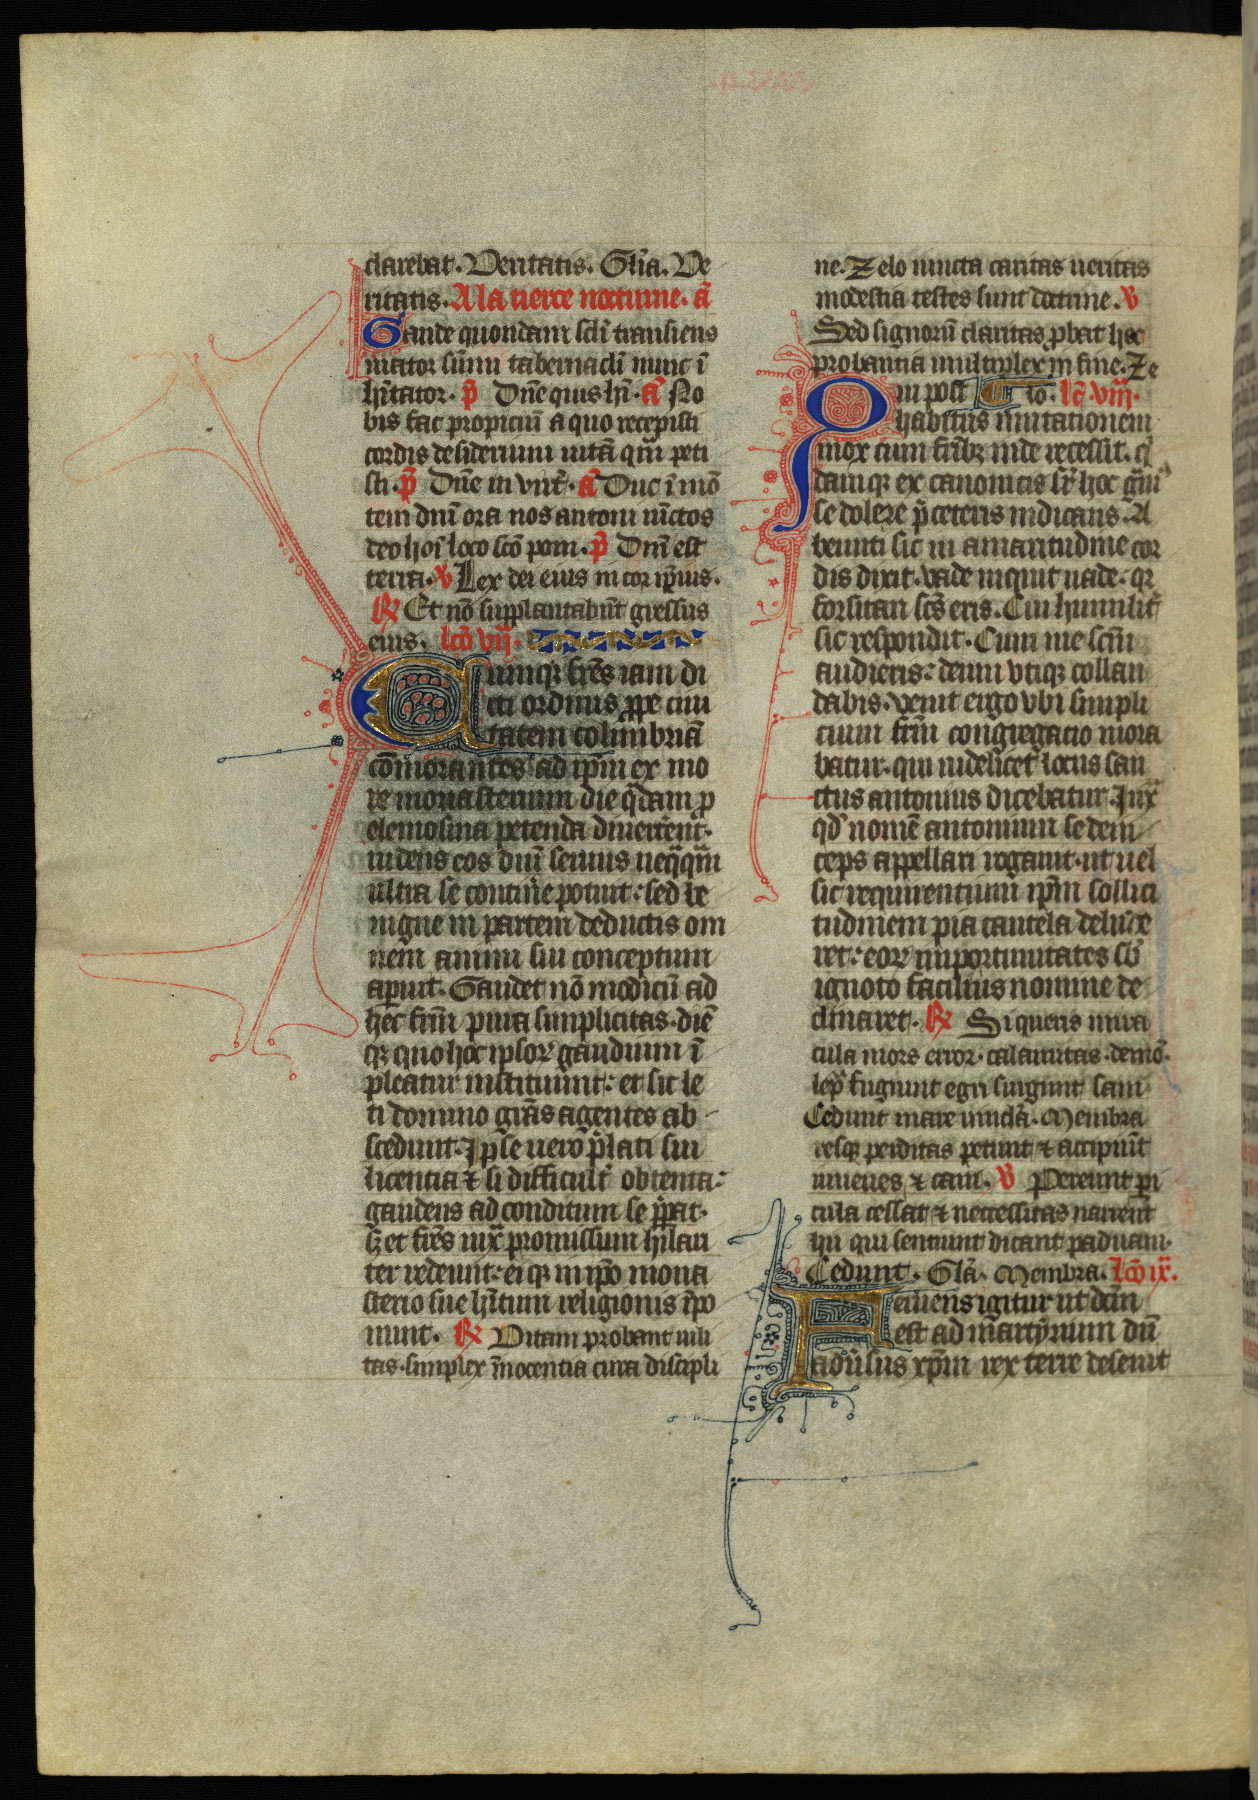 clarebat. Veritatis. Gl̄ia. Ve
ritatis. A la tierce nocturne. añ
Gaude quondam scd̄i transiens
mitator sūmi tabernacl̄i nunc ī
hītator. p̄s Dn̄e quis hī. añ No
bis fac propiciū a quo recepisti
cordis desiderium uitā quā peti
sti. p̄s Dn̄e in virt̄. añ Duc ī mō
tem dn̄i ora nos antoni iūctos
deo hoī loco sc̄o poni. p̄s Dn̄i est
terra. v̄ Lex dei eius in cor ip̄ius.
R̄ Et nō supplantabūt gressus
eius. lcō vij.
Cumq; fr̄es iam di
cti ordinis ꝓpe ciui
tatem colimbriā
cōmorantes ad ip̄m ex mo
re monasterium die q̄dam ꝓ
elemosina petenda diuerterēt.
uidens eos dn̄i seruus neq̄q̄m
ultra se contīne potuit: sed be
nigne in partem deductis om
nem animi sui conceptum
aperuit. Gaudet nō modicū ad
hec fr̄m pura simplicitas. diē
q; quo hoc ipsoꝝ gaudium ī
pleatur instituunt: et sic le
ti domino gr̄as agentes ab
scedunt. Ipse uero p̄lati sui
licentia ⁊ si difficult̄ obtenta:
gaudens ad conditum se p̄pat.
Sꝫ et fr̄es iux̄ promissum hilari
ter redeunt: eiq; in ip̄o mona
sterio sue hītum religionis īpo
nunt. R̄ Vitam probant uili
tas. simplex īnocentia cura discipli
ne. Zelo iuncta caritas ueritas
modestia testes sunt doctrine. v̄
Sed signorū claritas ꝓbat hec
probantia multiplex in fine. Ze
Qm post lo. lc̄ viij.
habitus mutationem
mox cum fr̄ibꝫ inde recessit. q̄
damq; ex canonicis sr̄ hoc gūiꝰ
se dolere p̄ ceteris indicans. A
beunti sic in amaritudine cor
dis dixit. vade inquit uade. qꝛ
forsitan sc̄s eris. Cui humilit̄
sic respondit. Cum me sc̄m
audietis: deum vtiq; collau
dabis. venit ergo vbi simpli
cium fr̄m congregacio mora
batur. qui uidelicet locus san
ctus antonius dicebatur. Iux̄
qd̄ nomē antonium se dein
ceps appellari rogauit. ut uel
sic requirentium ip̄m sollici
tudinem pia cautela delude
ret: eoꝝ inportunitates sb̄
ignoto facilius nomine de
clinaret. R̄ Si queris mira
cula mors error. calamitas. demō.
lep̄ fugiunt egri surgunt sani.
Cedunt mare uincla. Membra
resq; perditas petunt ⁊ accipiūt
iuuenes ⁊ cani. v̄ Pereunt pi
cula cessat ⁊ neccessitas narrent
hii qui sentiunt dicant paduani.
Cedunt. Gl̄a. Membra. lcō ix.
Feruens igitur ut dc̄m
est ad martyrium dū
aduīsus xp̄m rex terre deseuit